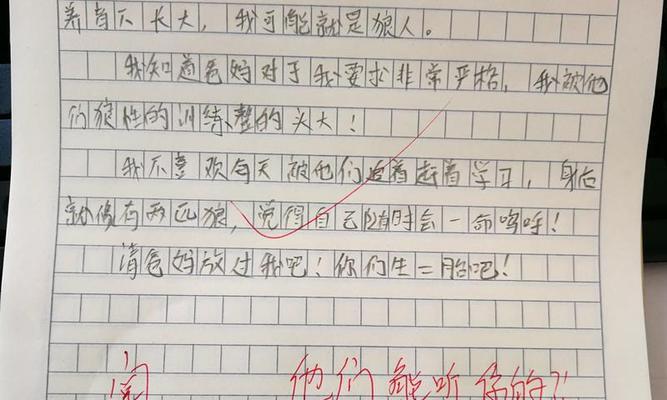 养育下长大，我可能就是狼人。
我知道爸妈对于我要求非常严格，我被他
们狼性的训练、整的头大！
我不喜欢每天被他们追着赶着学习，身后
就像有两匹狼，觉得自己随时会一命呜呼！
清爸妈放过我吧！你们生二胎吧！
阅 他们能听你的?!